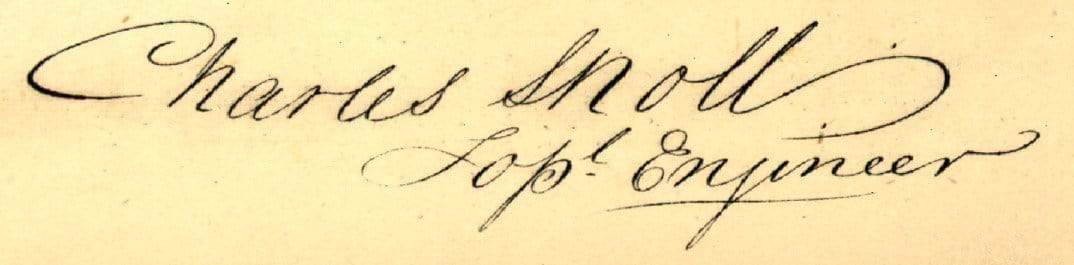 Charles Sholl
Topl. Engineer